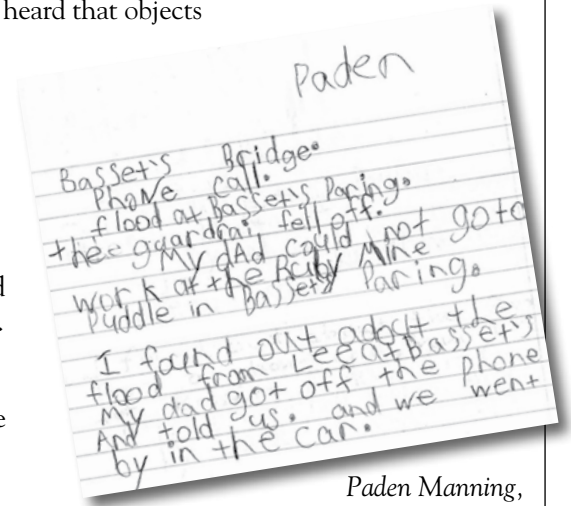 heard that objects
Paden
Basset's Bridge.
Phone call.
flood at Basset's Paring.
the guardrai fell off.
My dAd could not goto
work at the Ruby Mine
Puddle in Bassets Paring.
I found out adout the
flood from Lee at Basset's
My dad got off the phone
And told us. and we went
by in the car.
d
.
e
Paden Manning,